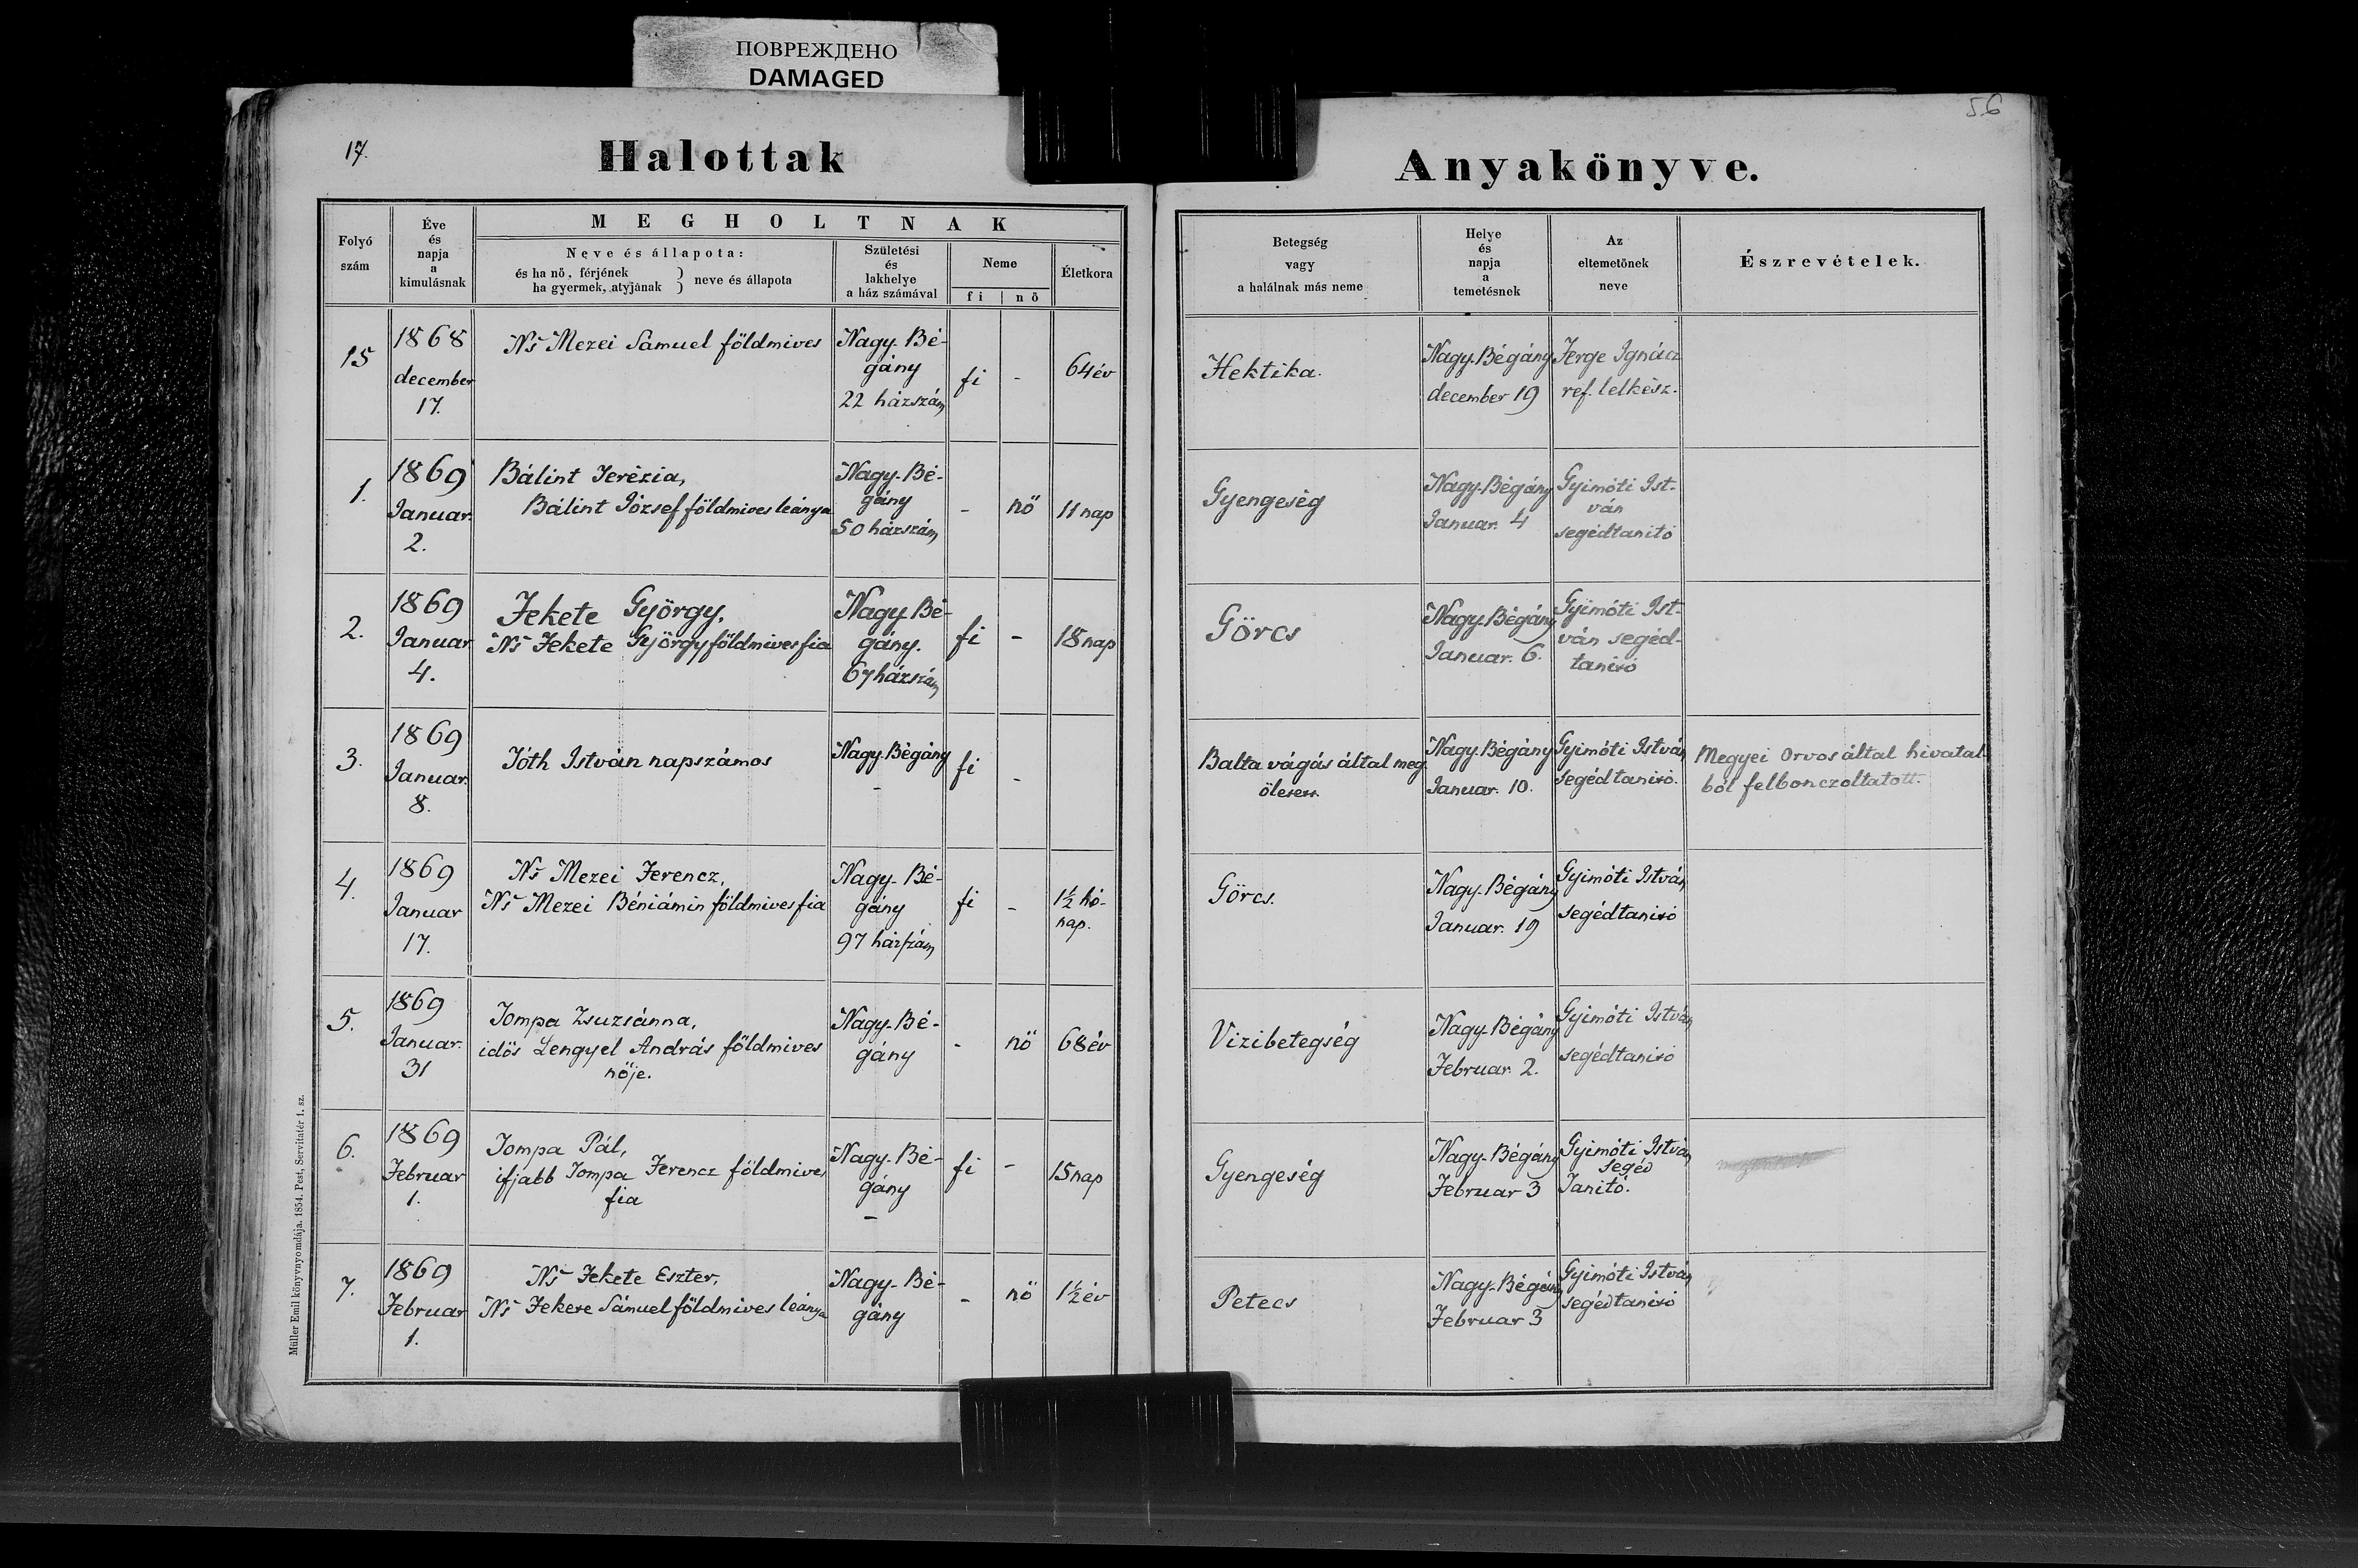 ПОВРЕЖДЕНО
DAMAGED
17.
Halottak
Folyó
szám
Éve
és
napja
a
kimulásnak
MEGHOLTNAK
Neve és állapota:
és ha nő, férjének
ha gyermek, atyjának
neve és állapota
Születési
és
lakhelye
a ház számával
Neme
fi
nő
Életkora
15
1868
december
17.
Ns Mezei Sámuel földmives
Nagy-Bé-
gány
22 házszám
fi
-
64 év
1.
1869
Januar.
2.
Bálint Terézia,
Bálint József földmives leánya
Nagy-Bé-
gány
50 házszám
-
nő
11 nap
2.
1869
Januar
4.
Fekete György,
Ns Fekete György földmives fia
Nagy Bé-
gány.
67 házszám
fi
-
18 nap
3.
1869
Januar.
8.
Tóth István napszámos
Nagy-Bégány
-
fi
-
4.
1869
Januar
17.
Ns Mezei Ferencz,
Ns Mezei Béniámin földmives fia
Nagy-Bé-
gány
97 házszám
fi
-
1½ hó-
nap.
5.
1869
Januar.
31
Tompa Zsuzsánna,
idős Lengyel András földmives
nője.
Nagy-Bé-
gány
-
nő
68 év
6.
1869
Februar
1.
Tompa Pál,
ifjabb Tompa Ferencz földmives
fia
Nagy-Bé-
gány
-
fi
-
15 nap
7.
1869
Februar
1.
Ns Fekete Eszter,
Ns Fekete Sámuel földmives leánya
Nagy-Bé-
gány
-
nő
1½ év
Müller Emil könyvnyomdája. 1854. Pest, Servitatér 1. sz.
56
Anyakönyve.
Betegség
vagy
a halálnak más neme
Helye
és
napja
a
temetésnek
Az
eltemetőnek
neve
Észrevételek.
Hektika.
Nagy-Bégány
december 19
Ferge Ignácz
ref. lelkész.
Gyengeség
Nagy-Bégány
Januar. 4
Gyimóti Ist-
ván
segédtanitó
Görcs
Nagy-Bégány
Januar. 6.
Gyimóti Ist-
ván segéd-
tanitó
Balta vágás által meg
öletett.
Nagy-Bégány
Januar. 10.
Gyimóti István
segédtanitó.
Megyei Orvos által hivatal
ból felbonczoltatott.
Görcs.
Nagy-Bégány
Januar. 19
Gyimóti István
segédtanitó
Vizibetegség
Nagy-Bégány
Februar. 2.
Gyimóti István
segédtanitó
Gyengeség
Nagy-Bégány
Februar 3
Gyimóti István
segéd
Tanitó.
Petecs
Nagy-Bégány
Februar 3
Gyimóti István
segédtanitó